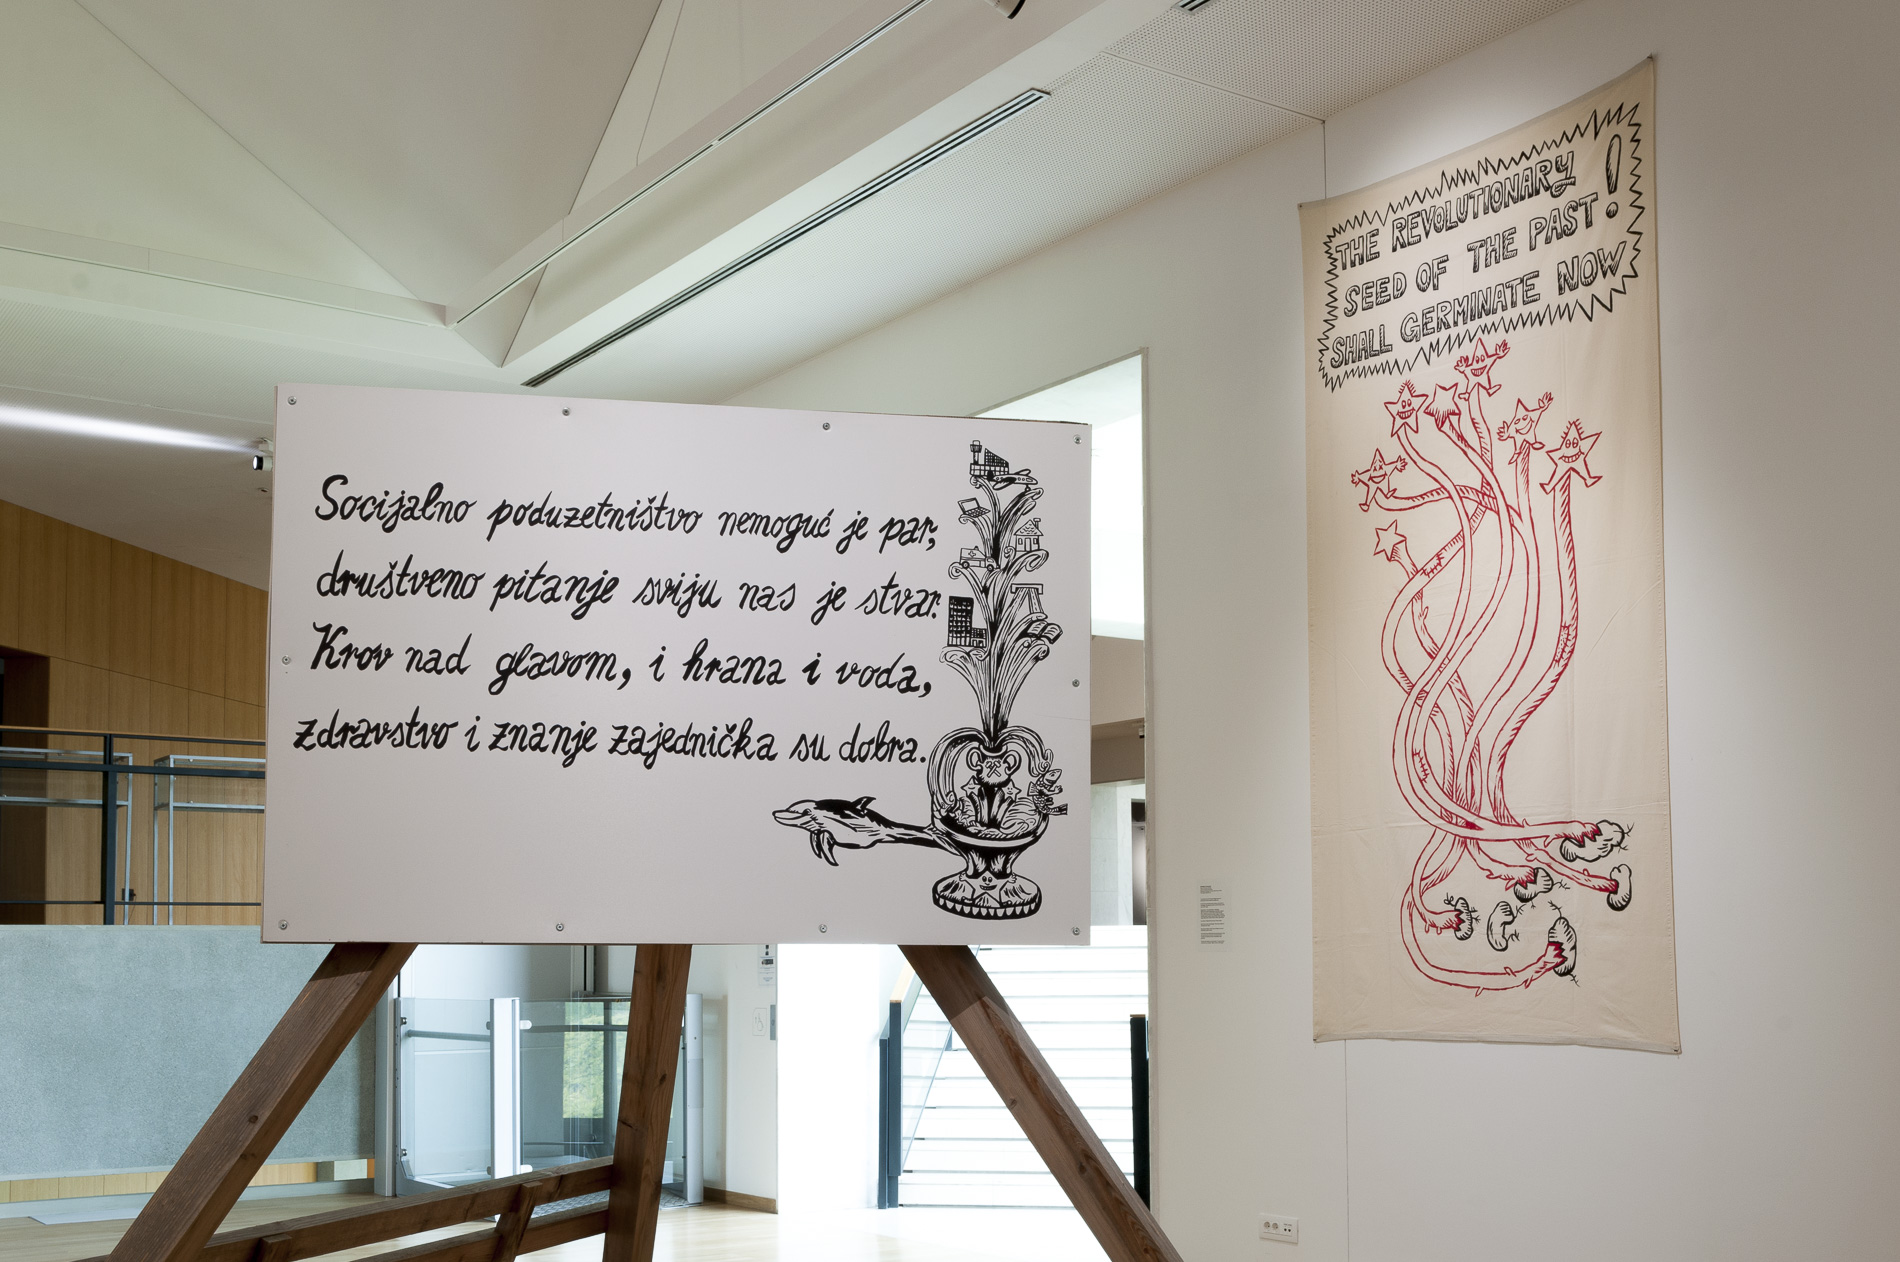 Socijalno poduzetništvo nemoguć je par,
društveno pitanje sviju nas je stvar.
Krov nad glavom, i hrana i voda,
zdravstvo i znanje zajednička su dobra.
THE REVOLUTIONARY
SEED OF THE PAST!
SHALL GERMINATE NOW